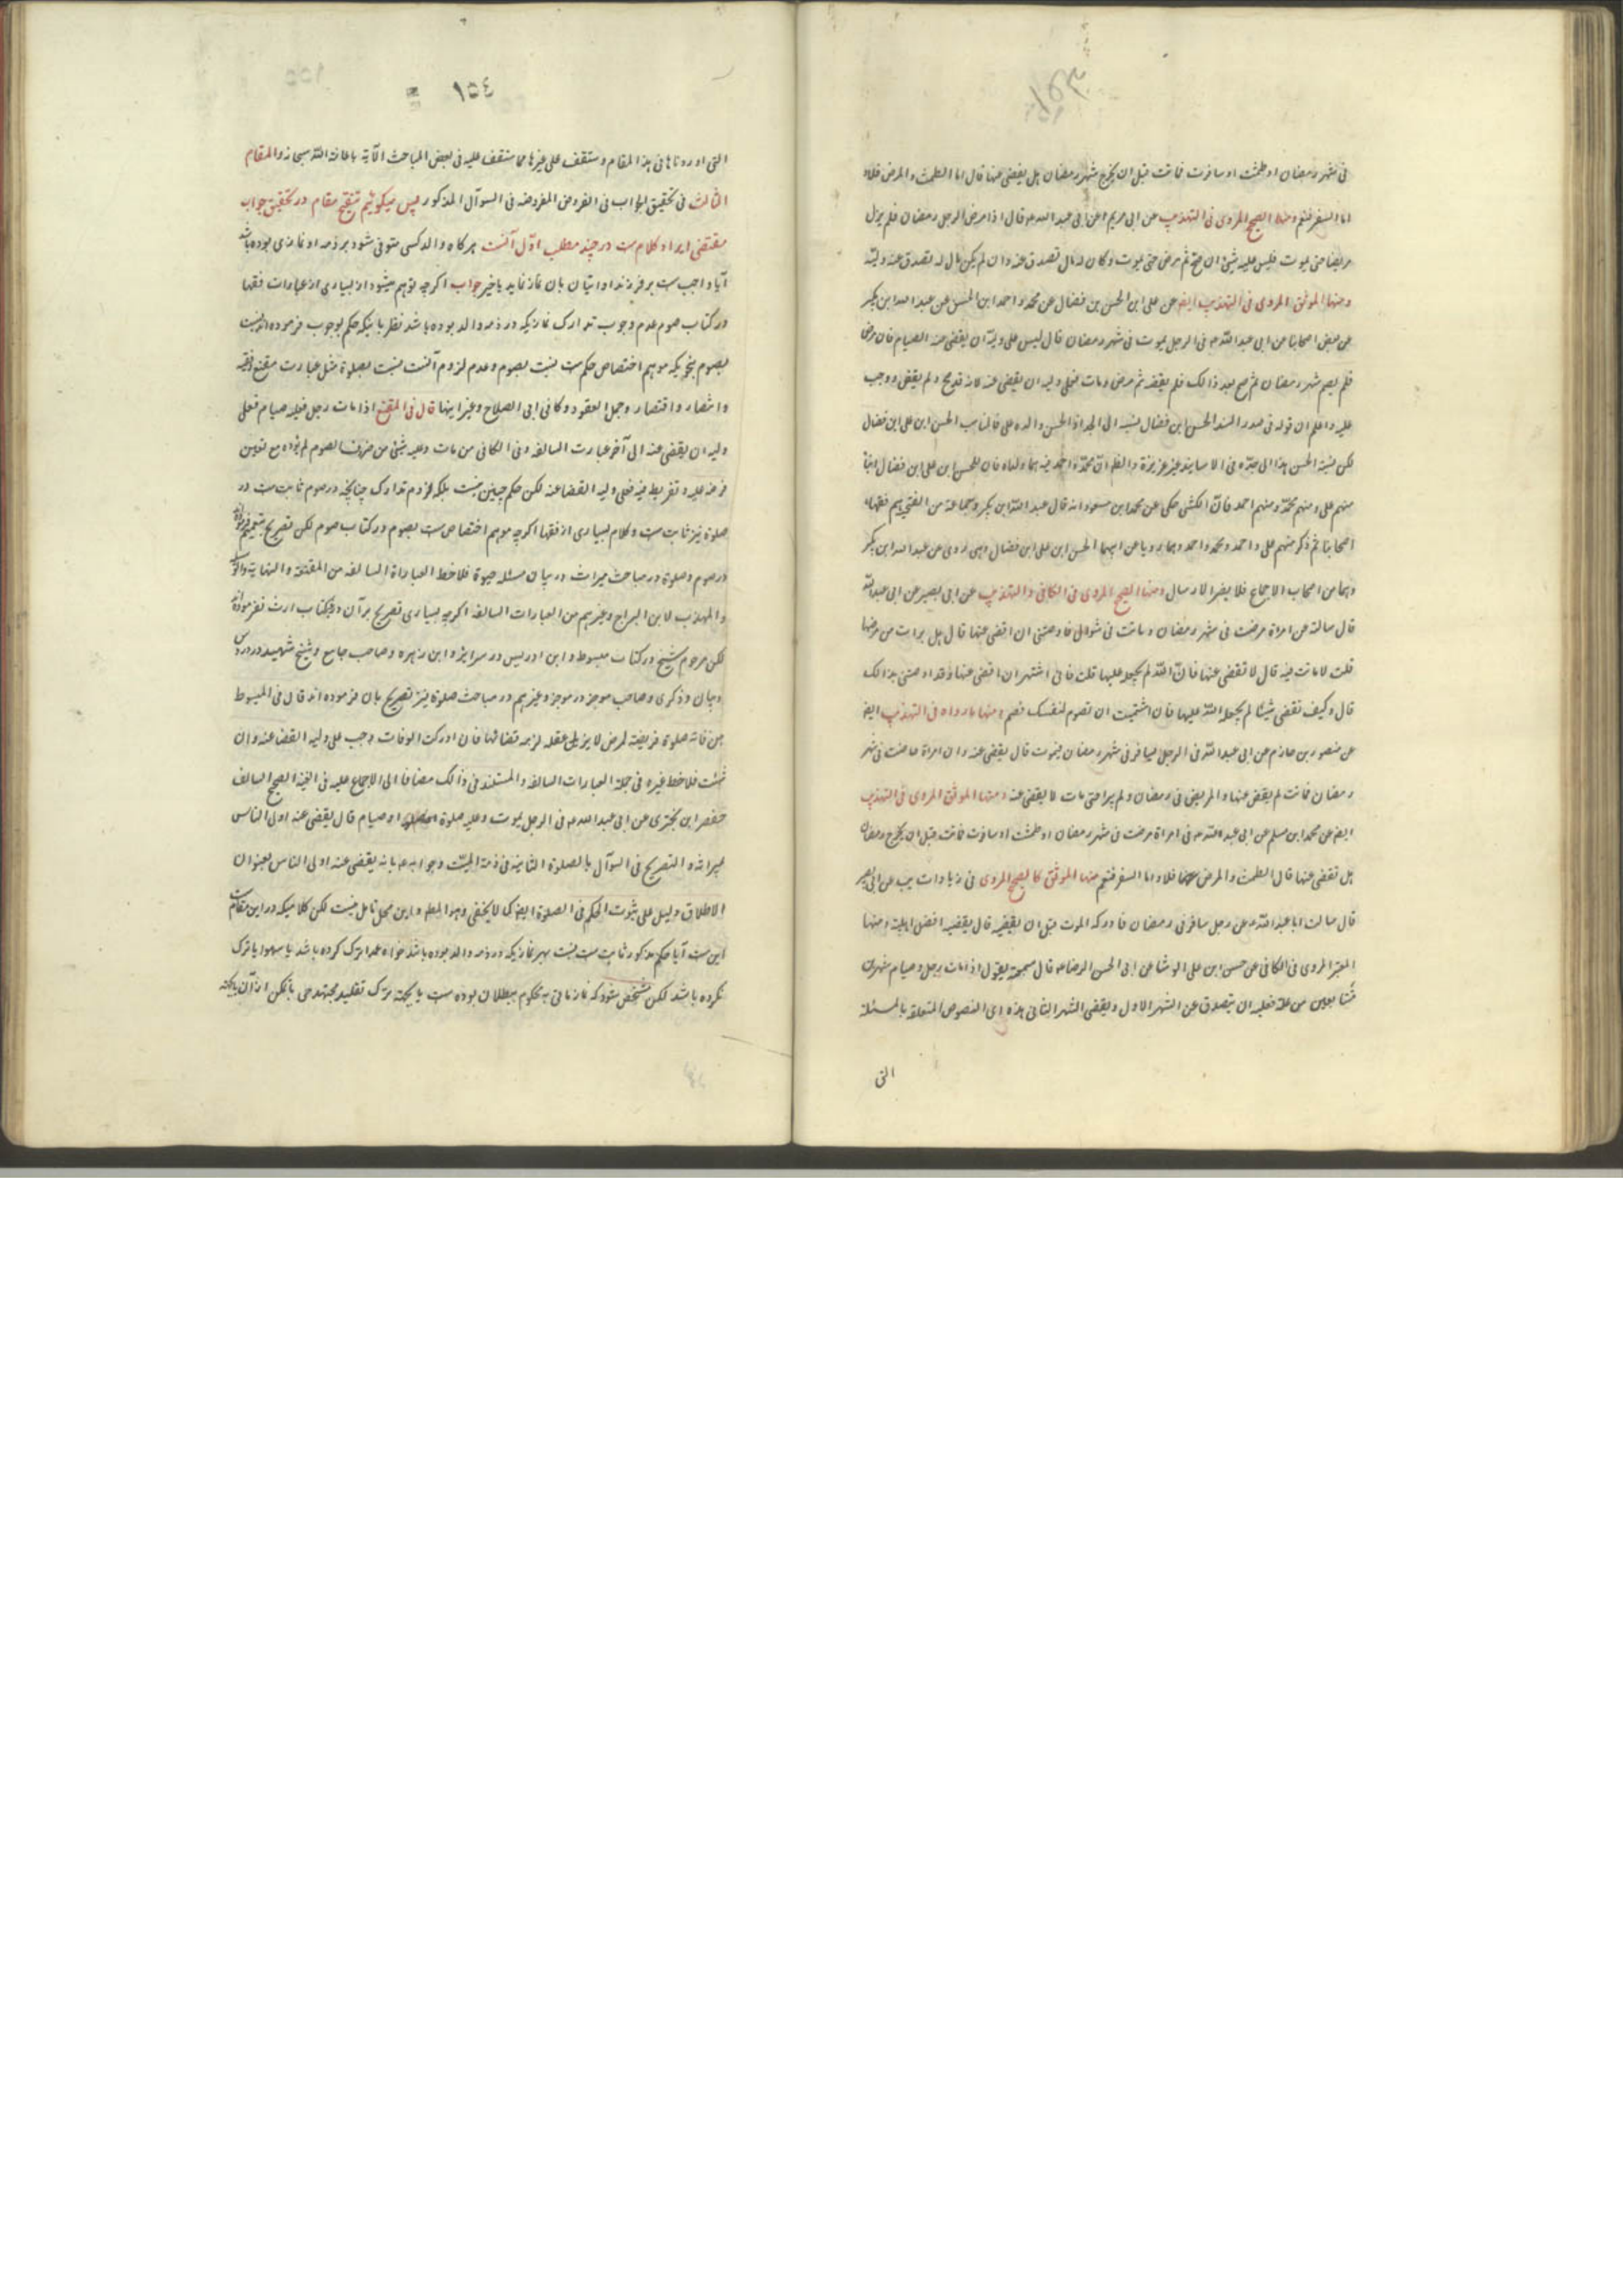 ١٥٣
فی شهر رمضان او طمثت او سافرت فماتت قبل ان یخرج شهر رمضان هل یقضی عنها قال اما الطمث و المرض فلا و
اما السفر فنعم و منها الصحیح المروی فی التهذیب عن ابی مریم عن ابی عبد الله ع قال اذا مرض الرجل رمضان فلم یزل
مریضا حتی یموت فلیس علیه شیئ ان صح ثم مرض حتی یموت و کان له مال تصدق عنه و ان لم یکن مال له تصدق عنه ولیّه
و منها الموثق المروی فی التهذیب ایضا عن علی ابن الحسن بن فضال عن محمد و احمد ابن الحسن عن عبد الله ابن بکیر
عن بعض اصحابنا عن ابی عبد اللّه ع فی الرجل یموت فی شهر رمضان قال لیس علی ولیّه ان یقضی عنه الصیام فان مرض
فلم یصم شهر رمضان ثم صح بعد ذالک فلم یقضه ثم مرض و مات فعلی ولیه ان یقضی عنه لانه قد صح و لم یقض و وجب
علیه و اعلم ان قوله فی صدر السند الحسن ابن فضال نسبة الی الجد اذ الحسن والده علی فالمناسب الحسن ابن علی ابن فضال
لکن نسبة الحسن هذا الی جدّه فی الاسانید غیر عزیزة و الظاهر انّ محمّد و احمد فیه هما ولداه فان للحسن ابن علی ابن فضال ابناء
منهم علی و منهم محمّد و منهم احمد فانّ الکشی حکی عن محمد ابن مسعود انه قال عبد اللّه ابن بکیر و جماعة من الفطحیة هم فقهاء
اصحابنا ثم ذکر منهم علی و احمد و محمد و احمد و هما رویا عن ابیهما الحسن ابن علی ابن فضال و هی روی عن عبد الله ابن بکیر
و هما من اصحاب الاجماع فلا یضر الارسال و منها الصحیح المروی فی الکافی و التهذیب عن ابی بصیر عن ابی عبد اللّه
قال سالته عن امراة مرضت فی شهر رمضان و ماتت فی شوال فاوصتنی ان اقضی عنها قال هل برات من مرضها
قلت لا ماتت فیه قال لا تقضی عنها فانّ اللّه لم یجعله علیها قلت فانی اشتهی ان اقضی عنها و قد اوصتنی بذالک
قال و کیف تقضی شیئا لم یجعله اللّه علیها فان اشتهیت ان تصوم لنفسک فصم و منها ما رواه فی التهذیب ایضا
عن منصور بن حازم عن ابی عبد اللّه فی الرجل یسافر فی شهر رمضان فیموت قال یقضی عنه و ان امراة حاضت فی شهر
رمضان فماتت لم یقض عنها و المریض فی رمضان و لم یبرا حتی مات لا یقضی عنه و منها الموثق المروی فی التهذیب
ایضا عن محمد ابن مسلم عن ابی عبد اللّه ع فی امراة مرضت فی شهر رمضان او طمثت او سافرت فماتت قبل ان یخرج رمضان
هل تقضی عنها قال الطمث و المرض فلا و اما السفر فنعم منها الموثق کالصحیح المروی فی زیادات یب عن ابی بصیر
قال سالت ابا عبد اللّه ع عن رجل سافر فی رمضان فادرکه الموت قبل ان یقضیه قال یقضیه افضل اهلبیته و منها
الخبر المروی فی الکافی عن حسن ابن علی الوشا عن ابی الحسن الرضا ع قال سمعته یقول اذا مات رجل و صیام شهرین
متتابعین من علة فعلیه ان یتصدق عن الشهر الاول و یقضی الشهر الثانی هذه هی النصوص المتعلقة بالمسئلة
التی
١٥٤
التی اوردناها فی هذا المقام و ستقف علی غیرها مما ستقف علیه فی بعض المباحث الآتیة باعانة اللّه سبحانه و المقام
الثالث فی تحقیق الجواب فی الفروض المفروضة فی السوآل المذکور پس میگوئیم تنقیح مقام در تحقیق جواب
مقتضی ایراد کلام ست در چند مطلب اوّل آنست هرکاه والد کسی متوفی شود بر ذمه او نمازی بوده باشد
آیا واجب ست بر فرزند او اتیان بان نماز نماید یا خیر جواب اکرچه توهم میشود از بسیاری از عبارات فقها
در کتاب صوم عدم وجوب تدارک نمازیکه در ذمه والد بوده باشد نظر باینکه حکم بوجوب فرموده اند نسبت
بصوم بنحویکه موهم اختصاص حکم ست نسبت بصوم و عدم لزوم آنست نسبت بصلوة مثل عبارت مقنع و فقیه
و انتصار و اقتصار و جمل العقود و کافی ابی الصلاح و غیر اینها قال فی المقنع اذا مات رجل فعلیه صیام فعلی
ولیه ان یقضی عنه الی آخر عبارت السالفة و فی الکافی من مات و علیه شیئ من ضروب الصوم لم یؤده مع تعین
فرضه علیه و تفریطه فیه فعلی ولیه القضا عنه لکن حکم چنین نیست بلکه لزوم تدارک چنانچه در صوم ثابت ست در
صلوة نیز ثابت ست و کلام بسیاری از فقها اکرچه موهم اختصاص ست بصوم در کتاب صوم لکن تصریح بتعمیم فرموده اند
در صوم و صلوة در مباحث میراث در بیان مسئله حبوة فلاحظ العبارة السالفه من المقنعة و النهایة و الوسیلة
و المهذب لابن البراج و غیرهم من العبارات السالفه اکرچه بسیاری تصریح بر آن در کتاب ارث نفرموده اند
لکن مرحوم شیخ در کتاب مبسوط و ابن ادریس در سرایر و ابن زهره و صاحب جامع و شیخ شهید در دروس
و بیان و ذکری و صاحب موجز در موجز و غیرهم در مباحث صلوة نیز تصریح بان فرموده اند قال فی المبسوط
من فاته صلوة فریضة لمرض لا یزیل عقله لزمه قضائها فان ادرکت الوفات وجب علی ولیه القضا عنه و ان
شئت فلاحظ غیره فی جملة العبارات السالفه و المستند فی ذالک مضافا الی الاجماع علیه فی الغنیة الصحیح السالف
حفص ابن بختری عن ابی عبد الله ع فی الرجل یموت و علیه صلوة او صیام قال یقضی عنه اولی الناس
بمیراثه و التصریح فی السوآل بالصلوة الثابته فی ذمة المیّت و جوابه ع بانه یقضی عنه اولی الناس بعنوان
الاطلاق دلیل علی ثبوت الحکم فی الصلوة ایضا کما لا یخفی و هذا المطلب و این محل تامل نیست لکن کلامیکه در این مقام است
این ست آیا حکم مذکور ثابت ست نسبت بهر نمازیکه در ذمه والد بوده باشد خواه عمدا ترک کرده باشد یا سهوا یا ترک
نکرده باشد لکن مشخص شود که نمازهائی محکوم ببطلان بوده ست یا بجهة ترک تقلید مجتهد حی با تمکن از آن یا بجهة